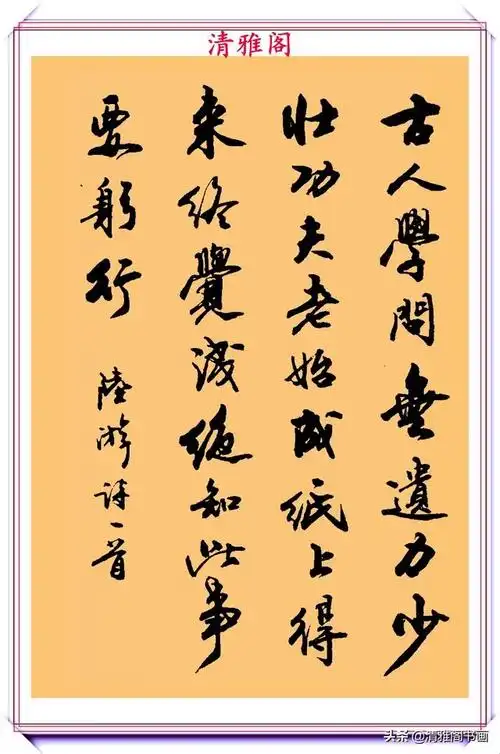 清雅阁
古人學問無遺力少
壯功夫老始成紙上得
来终覺淺絶知此事
要躬行
陸游诗一首
头条 @清雅阁书画